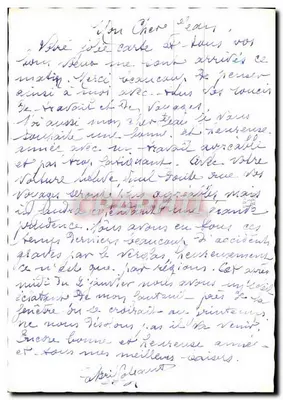 Mon Cher Jean,
Votre jolie carte et tous vos
bons vœux me sont arrivés ce
matin. Merci beaucoup de penser
ainsi à moi avec tous vos soucis
de travail et de voyages.
Moi aussi mon cher Jean je vous
souhaite une bonne et heureuse
année avec un travail agréable
et pas trop fatiguant. Avec votre
voiture neuve nul doute que vos
voyages seront très agréables mais
il faudra une grande
prudence. Nous avons eu tous ces
temps derniers beaucoup d'accidents
graves par le verglas, heureusement
ce n'est que par régions. Cet après
midi du 2 janvier nous avons un soleil
éclatant de mon fauteuil près de la
fenêtre on se croirait au printemps
ne nous disons pas il va venir.
Encore bonne et heureuse année
et tous mes meilleurs baisers.